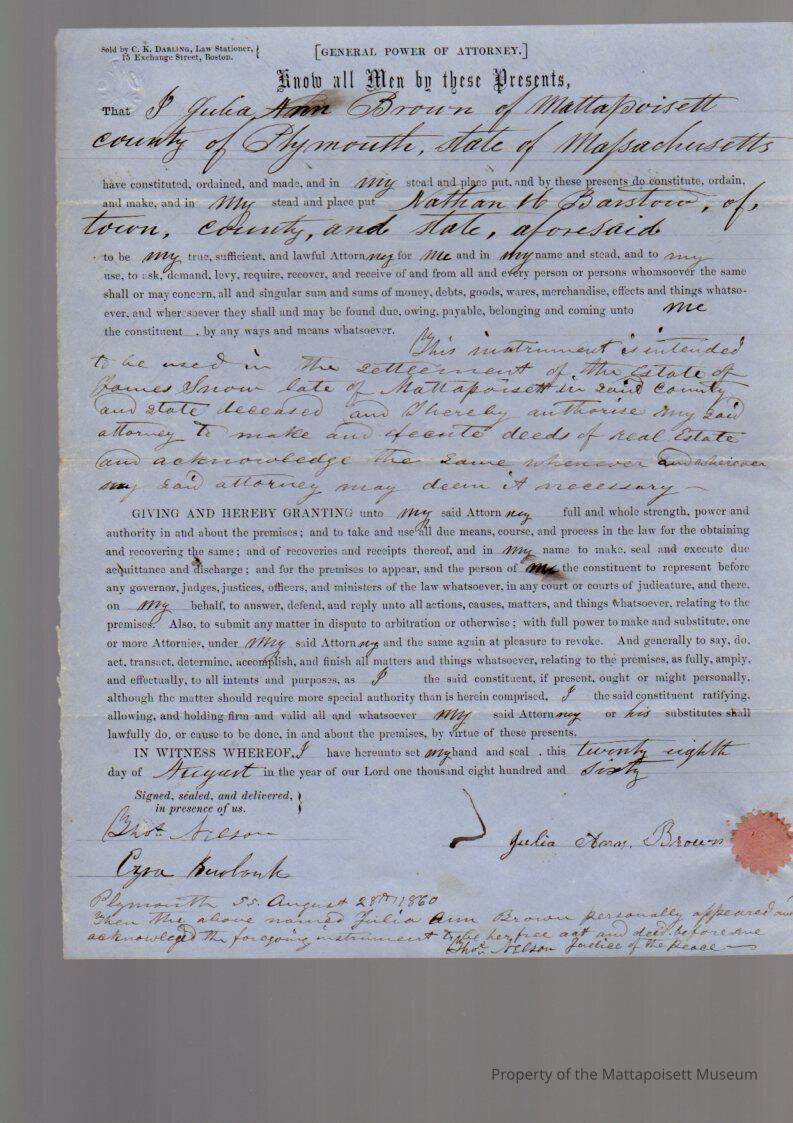 Sold by C. K. DARLING, Law Stationer,
15 Exchange Street, Boston.
[GENERAL POWER OF ATTORNEY.]
Know all Men by these Presents,
That I Julia Ann Brown of Mattapoisett
county of Plymouth, state of Massachusetts
have constituted, ordained, and made, and in my stead and place put, and by these presents do constitute, ordain,
and make, and in my stead and place put Nathan H Barstow, of,
town, county, and state, aforesaid
to be my true, sufficient, and lawful Attorney for me and in my name and stead, and to my
use, to ask, demand, levy, require, recover, and receive of and from all and every person or persons whomsoever the same
shall or may concern, all and singular sum and sums of money, debts, goods, wares, merchandise, effects and things whatso-
ever, and wheresoever they shall and may be found due, owing, payable, belonging and coming unto me
the constituent , by any ways and means whatsoever.
This instrument is intended
to be used in the settlement of the Estate of
James Snow late of Mattapoisett in said County
and state deceased and I hereby authorise my said
attorney to make and execute deeds of real Estate
and acknowledge the same whenever and wherever
my said attorney may deem it necessary
GIVING AND HEREBY GRANTING unto my said Attorn ney full and whole strength, power and
authority in and about the premises; and to take and use all due means, course, and process in the law for the obtaining
and recovering the same; and of recoveries and receipts thereof, and in my name to make, seal and execute due
acquittance and discharge; and for the premises to appear, and the person of me the constituent to represent before
any governor, judges, justices, officers, and ministers of the law whatsoever, in any court or courts of judicature, and there,
on my behalf, to answer, defend, and reply unto all actions, causes, matters, and things whatsoever, relating to the
premises. Also, to submit any matter in dispute to arbitration or otherwise; with full power to make and substitute, one
or more Attornies, under my said Attorney and the same again at pleasure to revoke. And generally to say, do,
act, transact, determine, accomplish, and finish all matters and things whatsoever, relating to the premises, as fully, amply,
and effectually, to all intents and purposes, as I the said constituent, if present, ought or might personally,
although the matter should require more special authority than is herein comprised, I the said constituent ratifying,
allowing, and holding firm and valid all and whatsoever my said Attorney or his substitutes shall
lawfully do, or cause to be done, in and about the premises, by virtue of these presents.
IN WITNESS WHEREOF, I have hereunto set my hand and seal , this twenty eighth
day of August in the year of our Lord one thousand eight hundred and sixty
Signed, sealed, and delivered,
in presence of us.
Thos. Nelson
Julia Ann. Brown
Ezra Burbank
Plymouth SS. August 28th 1860
Then the above named Julia Ann Brown personally appeared and
acknowledged the foregoing instrument to be her free act and deed. before me
Thos. Nelson Justice of the Peace
Property of the Mattapoisett Museum